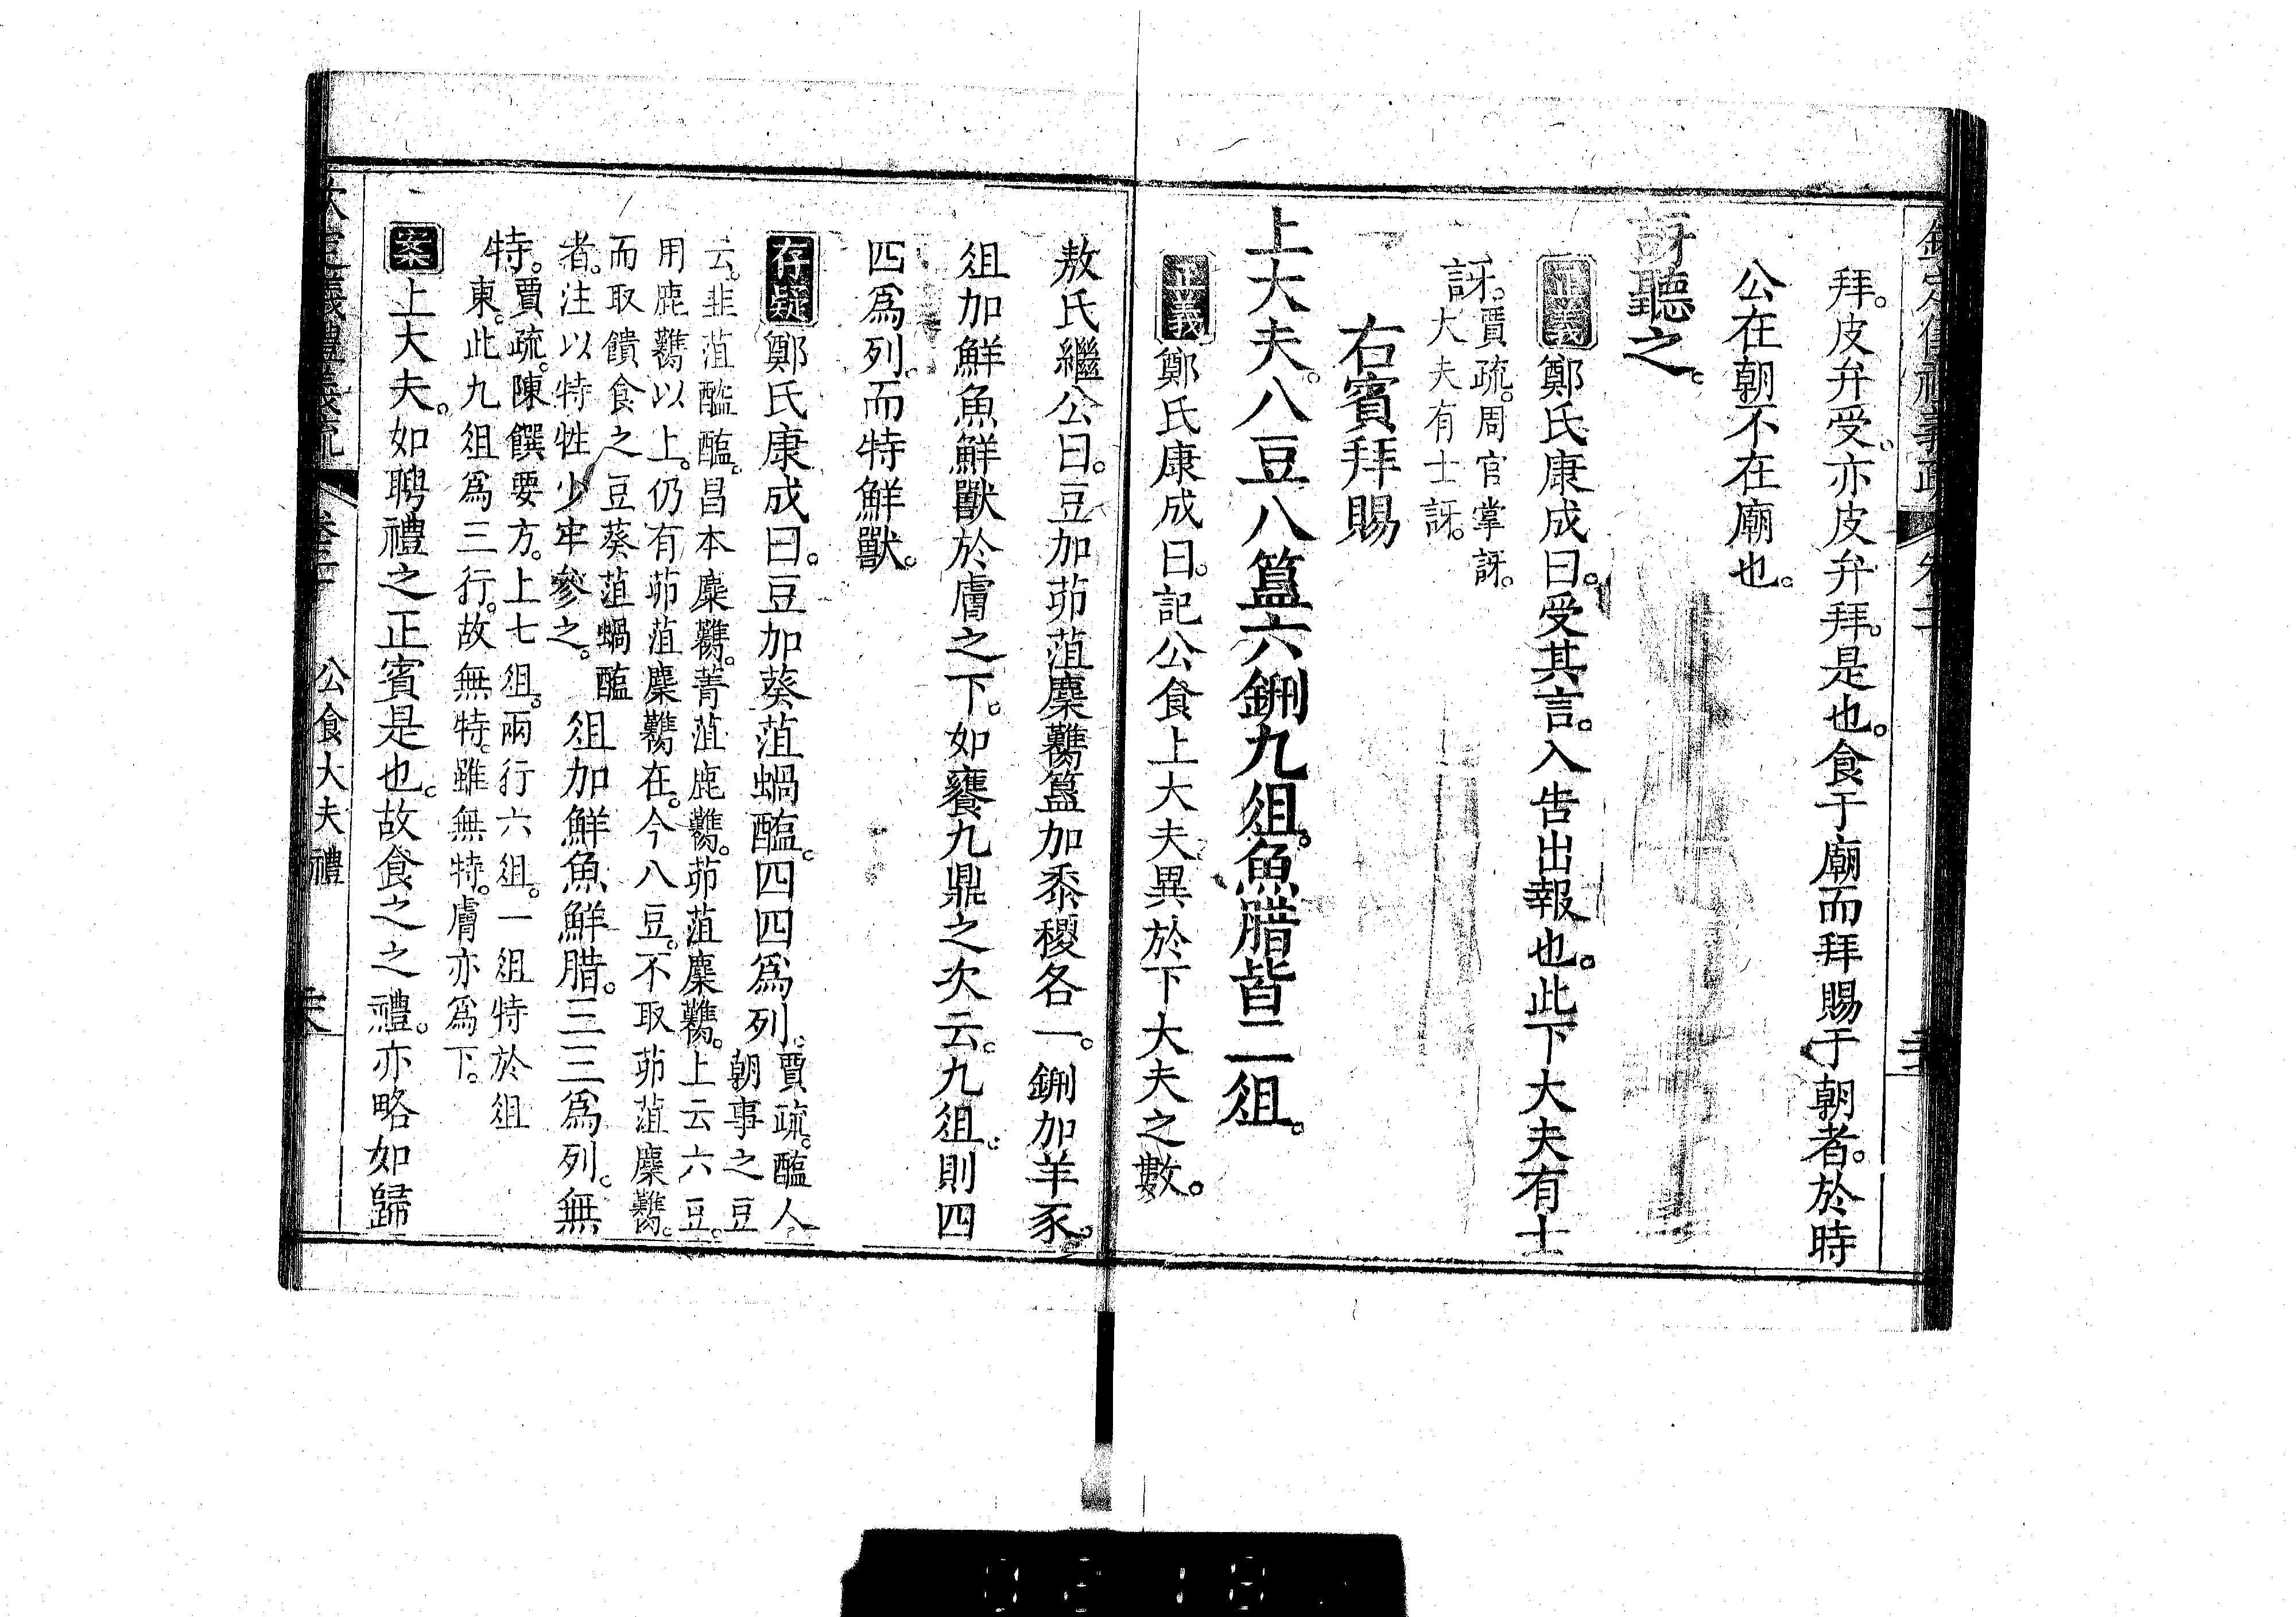 拜。皮弁受。亦皮弁拜。是也。食于廟而拜賜于朝者。於時
公在朝不在廟也。
訝聽之。
正義鄭氏康成曰。受其言。入告出報也。此下大夫有士
訝。賈疏。周官掌訝。
大夫有士訝。
右賓拜賜
上大夫。八豆八簋六鉶九俎。魚腊皆二俎。
正義鄭氏康成曰。記公食上大夫異於下大夫之數。
敖氏繼公曰。豆加茆菹麋臡簋加黍稷各一。鉶加羊豕。
俎加鮮魚鮮獸於膚之下。如饔九鼎之次云。九俎。則四
四爲列。而特鮮獸。
存疑鄭氏康成曰。豆加葵菹蝸醢。四四爲列。賈疏。醢人
朝事之豆
云。韭菹醓醢。昌本麋臡。菁菹鹿臡。茆菹麋臡。上云六豆。
用鹿臡以上。仍有茆菹麋臡在。今八豆。不取茆菹麋臡。
而取饋食之豆葵菹蝸醢
者。注以特牲少牢參之。俎加鮮魚鮮腊。三三爲列。無
特。賈疏。陳饌要方。上七俎。兩行六俎。一俎特於俎
東。此九俎爲三行。故無特。雖無特。膚亦爲下。
案上大夫。如聘禮之正賓是也。故食之之禮。亦略如歸
公食大夫禮